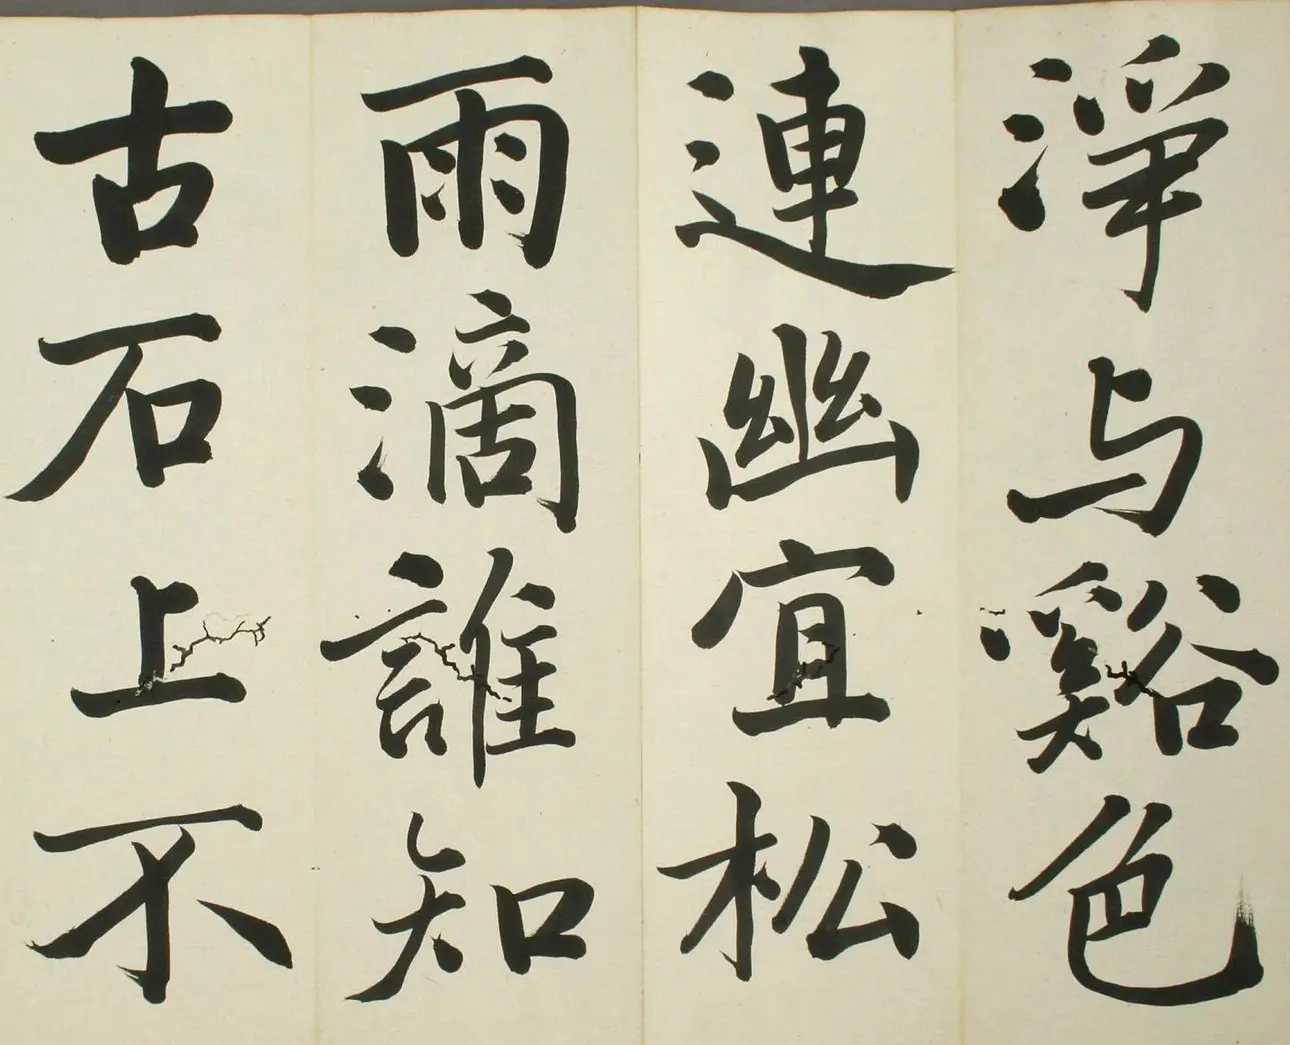 淨与谿色
連幽宜松
雨滴誰知
古石上不